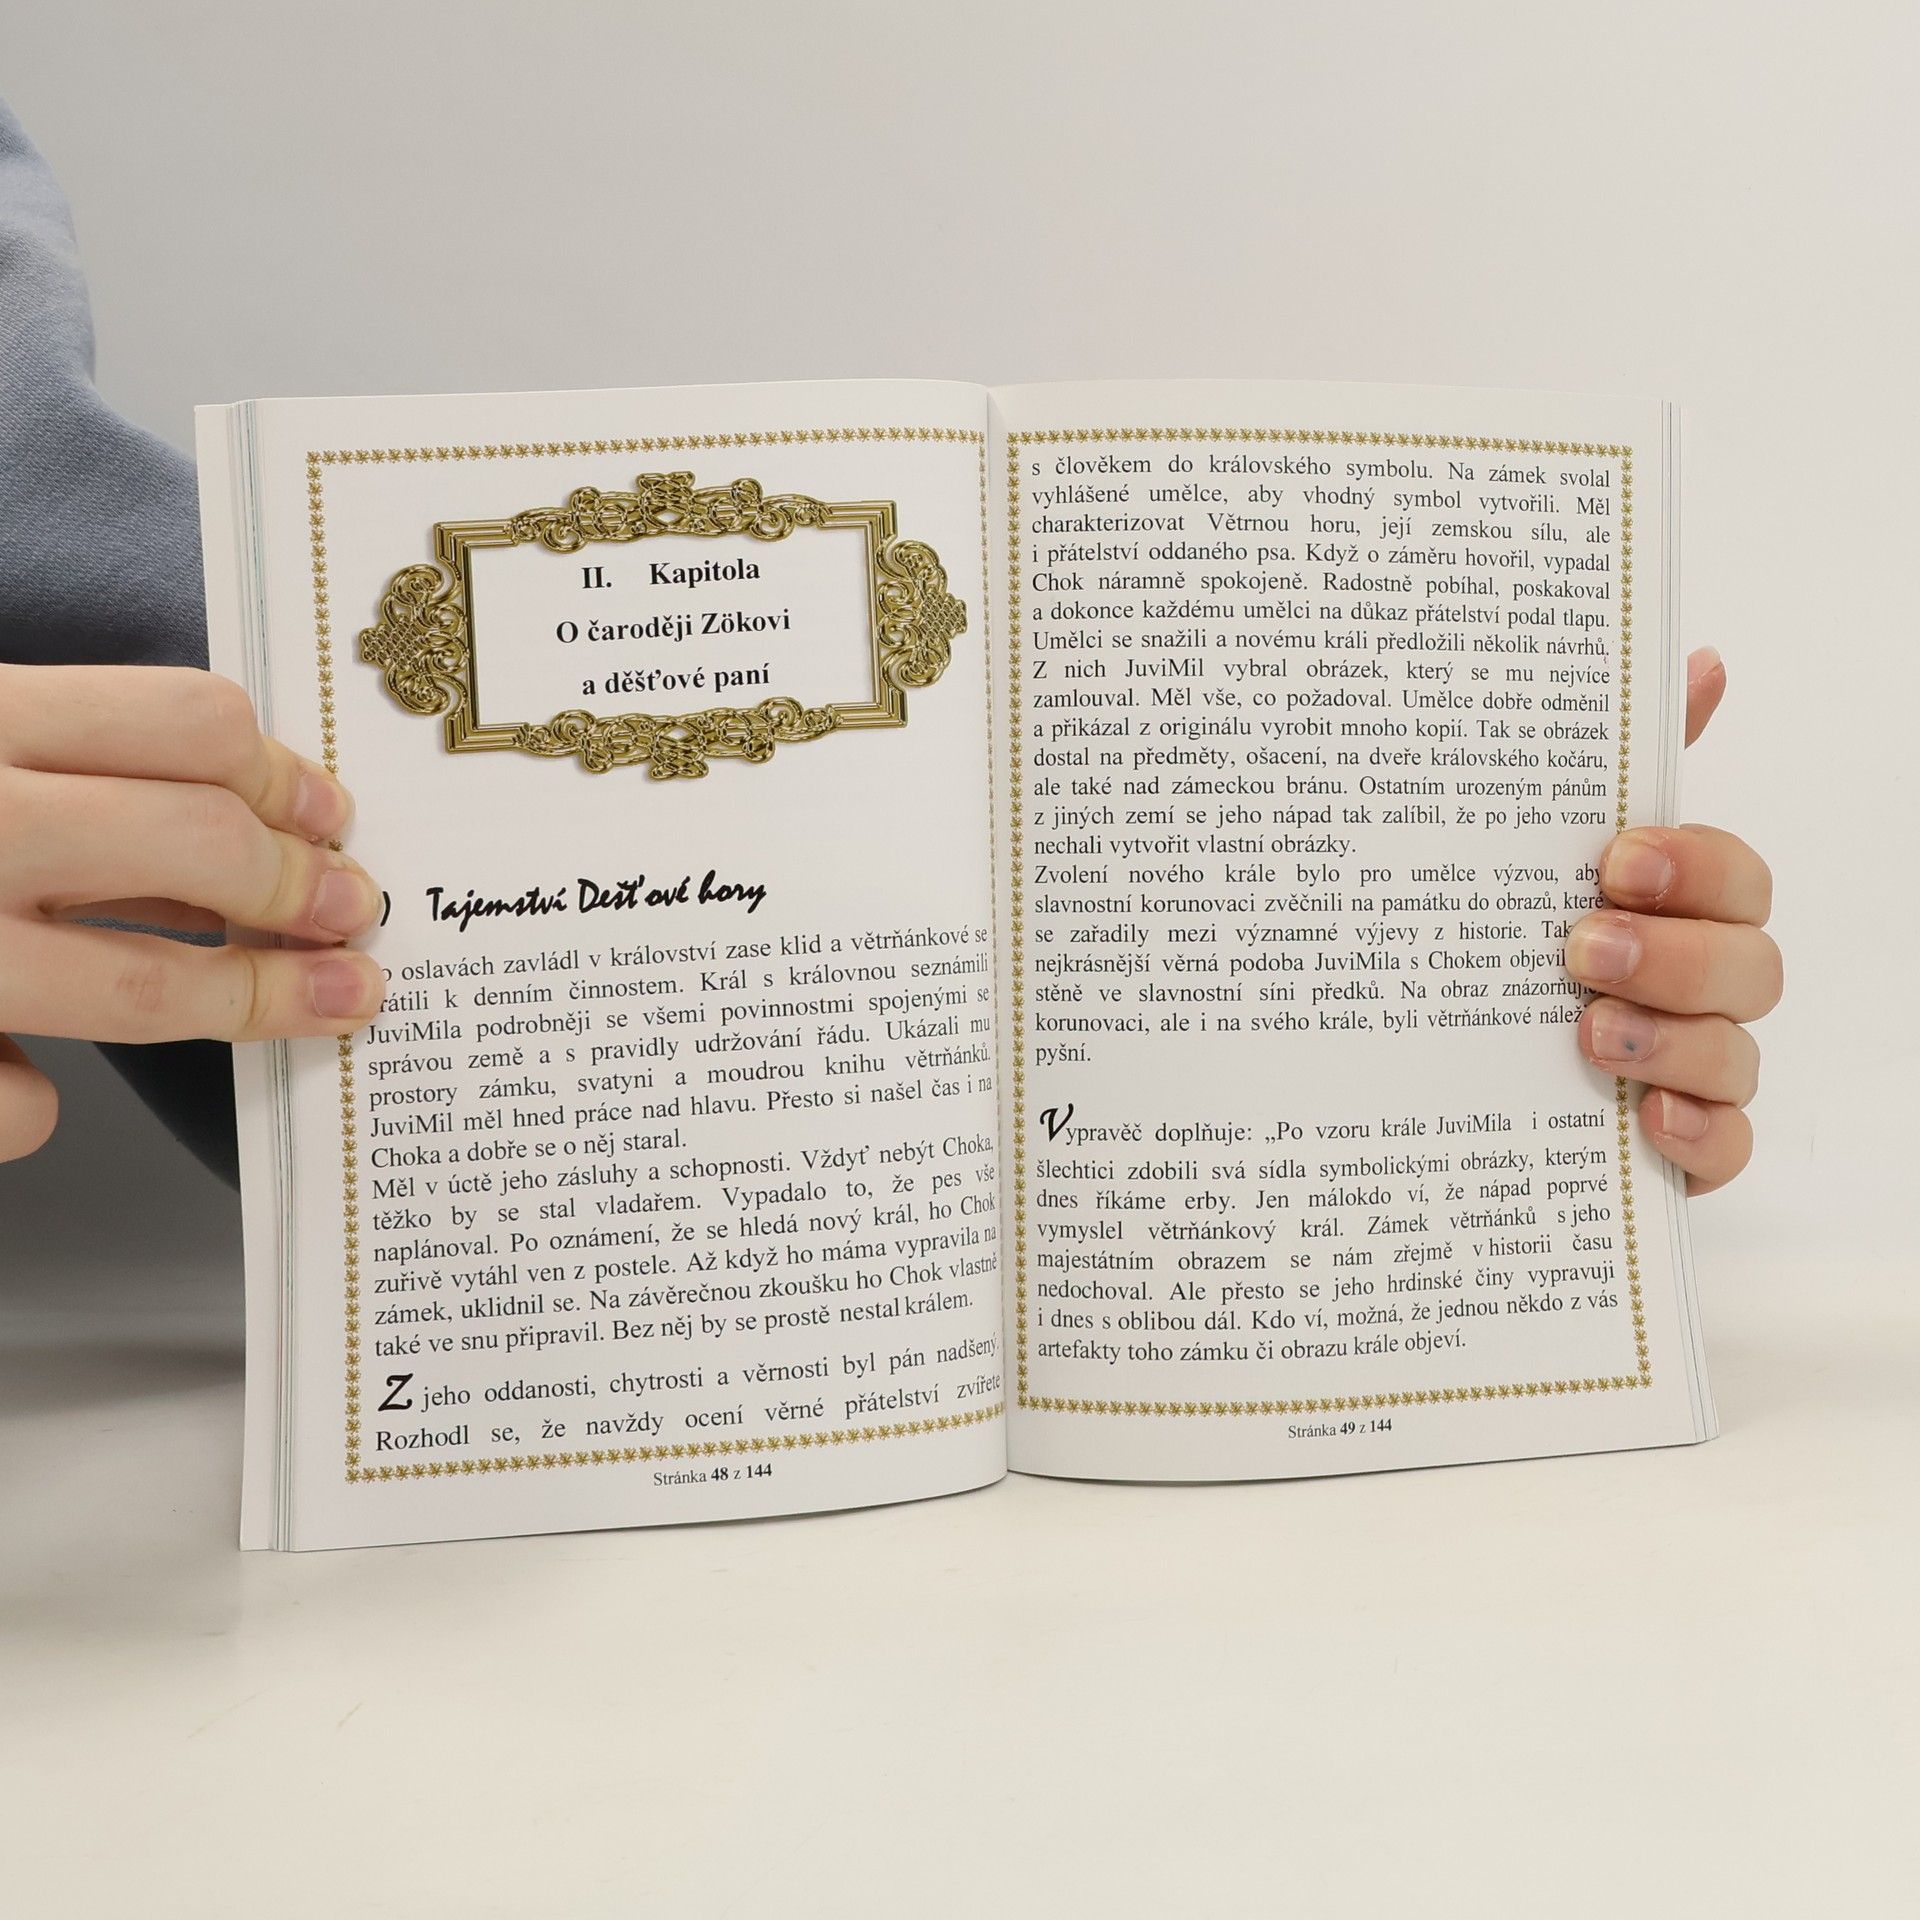 II. Kapitola
O čaroději Zökovi
a děšťové paní
) Tajemství Dešťové hory
oslavách zavládl v království zase klid a větrňánkové se
k denním činnostem. Král s královnou seznámili
JuviMila podrobněji se všemi povinnostmi spojenými se
správou země a s pravidly udržování řádu. Ukázali mu
prostory zámku, svatyni a moudrou knihu větrňánků.
JuviMil měl hned práce nad hlavu. Přesto si našel čas i na
Choka a dobře se o něj staral.
Měl v úctě jeho zásluhy a schopnosti. Vždyť nebýt Choka,
těžko by se stal vladařem. Vypadalo to, že pes vše
naplánoval. Po oznámení, že se hledá nový král, ho Chok
zuřivě vytáhl ven z postele. Až když ho máma vypravila na
zámek, uklidnil se. Na závěrečnou zkoušku ho Chok vlastně
také ve snu připravil. Bez něj by se prostě nestal králem.
Z jeho oddanosti, chytrosti a věrnosti byl pán nadšený.
Rozhodl se, že navždy ocení věrné přátelství zvířete
Stránka 48 z 144
s člověkem do královského symbolu. Na zámek svolal
vyhlášené umělce, aby vhodný symbol vytvořili. Měl
charakterizovat Větrnou horu, její zemskou sílu, ale
i přátelství oddaného psa. Když o záměru hovořil, vypadal
Chok náramně spokojeně. Radostně pobíhal, poskakoval
a dokonce každému umělci na důkaz přátelství podal tlapu.
Umělci se snažili a novému králi předložili několik návrhů.
Z nich JuviMil vybral obrázek, který se mu nejvíce
zamlouval. Měl vše, co požadoval. Umělce dobře odměnil
a přikázal z originálu vyrobit mnoho kopií. Tak se obrázek
dostal na předměty, ošacení, na dveře královského kočáru,
ale také nad zámeckou bránu. Ostatním urozeným pánům
z jiných zemí se jeho nápad tak zalíbil, že po jeho vzoru
nechali vytvořit vlastní obrázky.
Zvolení nového krále bylo pro umělce výzvou, aby
slavnostní korunovaci zvěčnili na památku do obrazů, které
se zařadily mezi významné výjevy z historie.
nejkrásnější věrná podoba JuviMila s Chokem
stěně ve slavnostní síni předků. Na obraz
korunovaci, ale i na svého krále, byli větrňánkové
pyšní.
Vypravěč doplňuje: „Po vzoru krále JuviMila i ostatní
šlechtici zdobili svá sídla symbolickými obrázky, kterým
dnes říkáme erby. Jen málokdo ví, že nápad poprvé
vymyslel větrňánkový král. Zámek větrňánků s jeho
majestátním obrazem se nám zřejmě v historii času
nedochoval. Ale přesto se jeho hrdinské činy vypravuji
i dnes s oblibou dál. Kdo ví, možná, že jednou někdo z vás
artefakty toho zámku či obrazu krále objeví.
Stránka 49 z 144